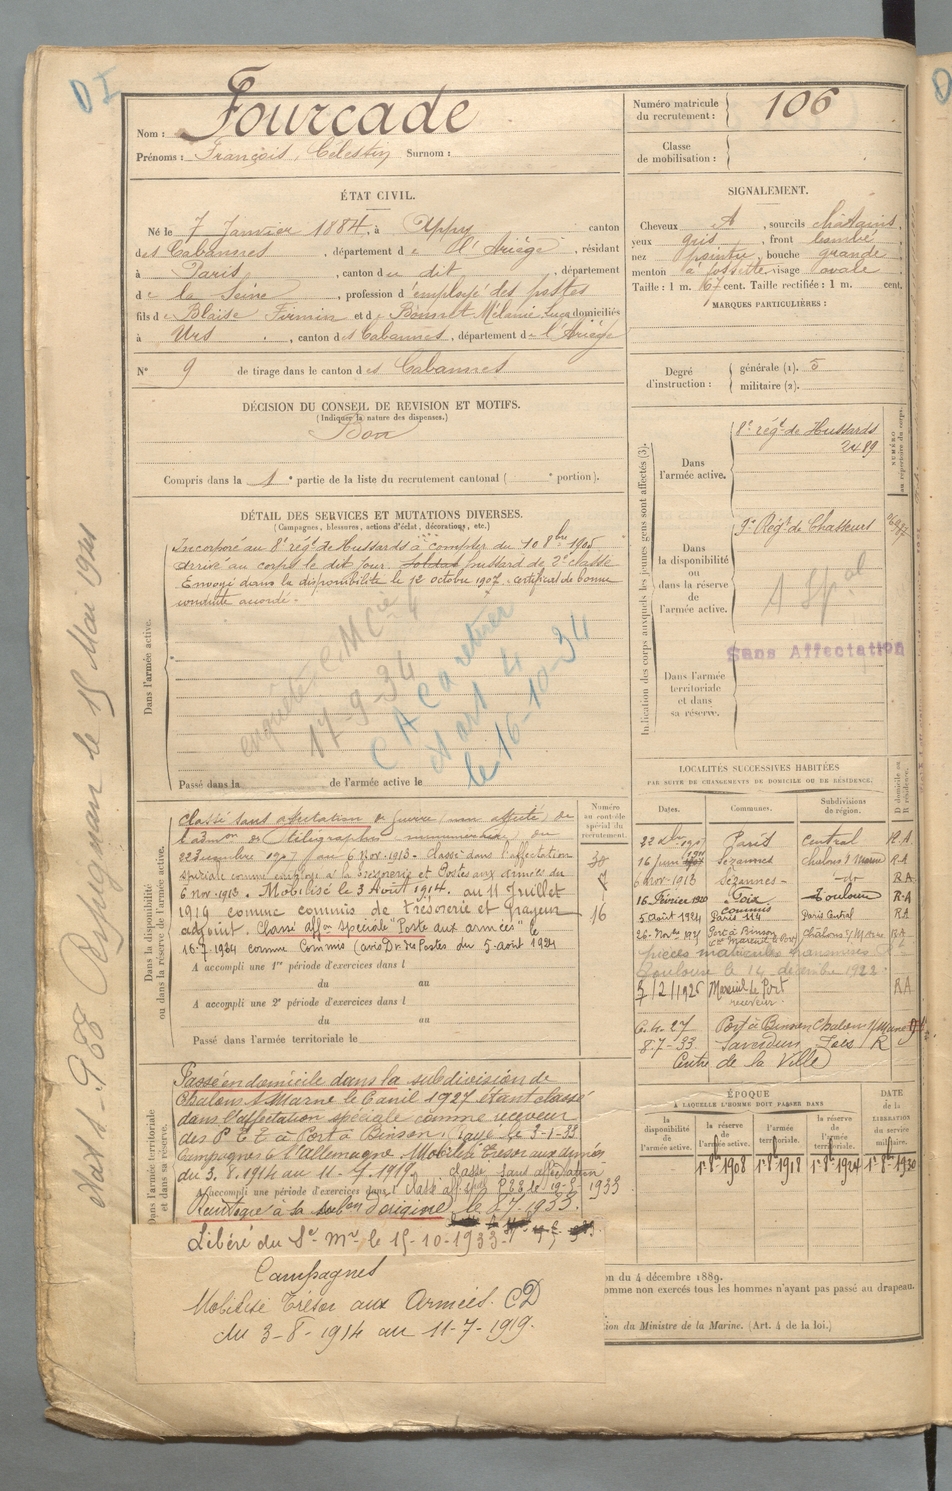 D I
Nom : Fourcade
Prénoms : François, Célestin Surnom :
Numéro matricule du recrutement : 106
Classe de mobilisation :
ÉTAT CIVIL.
Né le 7 Janvier 1884, à Appy canton
des Cabannes, département de l'Ariège, résidant
à Paris, canton du dit, département
de la Seine, profession d'employé des postes
fils de Blaise Firmin et de Bonnet Mélanie domiciliés
à Urs, canton des Cabannes, département de l'Ariège
N° 9 de tirage dans le canton des Cabannes
SIGNALEMENT.
Cheveux A, sourcils châtains,
yeux gris, front bombé,
nez pointu, bouche grande
menton à fossette, visage ovale
Taille : 1 m. 67 cent. Taille rectifiée : 1 m. cent.
MARQUES PARTICULIÈRES :
Degré d'instruction : générale (1). 5
militaire (2).
DÉCISION DU CONSEIL DE REVISION ET MOTIFS.
(Indiquer la nature des dispenses.)
Bon
Compris dans la 1e partie de la liste du recrutement cantonal ( e portion).
DÉTAIL DES SERVICES ET MUTATIONS DIVERSES.
(Campagnes, blessures, actions d'éclat, décorations, etc.)
Dans l'armée active.
Incorporé au 8e régt de Hussards à compter du 10 8bre 1905
Arrivé au corps le dit jour, soldat hussard de 2e classe
Envoyé dans la disponibilité le 12 octobre 1907, certificat de bonne
conduite accordé.
17-9-34
le 16-10-34
Passé dans la de l'armée active le
Indication des corps auxquels les jeunes gens sont affectés (3).
NUMÉRO au répertoire du corps.
Dans l'armée active.
8e régt de Hussards
2489
Dans la disponibilité ou dans la réserve de l'armée active.
9e Régt de Chasseurs
A Spal
Sans Affectation
Dans l'armée territoriale et dans sa réserve.
Dans la disponibilité ou dans la réserve de l'armée active.
Numéro au contrôle spécial du recrutement.
Classé sans affectation de guerre (non affecté) de
l'admon de télégraphie du
22 Decembre 1907 au 6 Nov. 1913. Classé dans l'affectation
spéciale comme employé à la Trésorerie et Postes aux armées du
6 nov. 1913. Mobilisé le 3 Août 1914. au 11 Juillet
1919 comme commis de trésorerie et payeur
adjoint. Classé affon spéciale "Poste aux armées" le
comme Commis (avis Dr des Postes du 5-août 1924
30
16
A accompli une 1re période d'exercices dans l
du au
A accompli une 2e période d'exercices dans l
du au
Passé dans l'armée territoriale le
LOCALITÉS SUCCESSIVES HABITÉES
PAR SUITE DE CHANGEMENTS DE DOMICILE OU DE RÉSIDENCE.
Dates. Communes. Subdivisions de région. D domicile ou R résidence.
Paris Central R.A
16 Juin Sézannes Chalons s/ Marne R.A
6 Nov. 1913 Sézannes - do RA
16 Février 1920 Foix commis Toulouse R.A
5 août 1924 Paris 114 Paris Central RA
Port à Binson Châlons s/ Marne
pièces matricules transmises à
Toulouse le 14 decembre 1922.
3/2/1926 Mareuil le Port receveur. RA
6.4.27 Port à Binson Chalons s/ Marne
8-7-33 Saverdun Foix R
Centre de la Ville
Dans l'armée territoriale et dans sa réserve.
Passé en domicile dans la subdivision de
Chalons s/ Marne le 6 avril 1927 étant classé
dans l'affectation spéciale comme receveur
des P.E.T. à Port à Binson, rayé le 3-1-33
Campagnes C. l'Allemagne. Mobilisé Trésor aux armées
du 3.8.1914 au 11-7.1919. Classé sans affectation
A accompli une période d'exercices dans l
1933
Réintégré à la subon d'origine le 27.1933.
Libéré du Sce Mre le 15-10-1933.
Campagnes
Mobilisé Trésor aux Armées. CD
du 3-8-1914 au 11-7-1919.
ÉPOQUE
À LAQUELLE L'HOMME DOIT PASSER DANS
la disponibilité de l'armée active. la réserve de l'armée active. l'armée territoriale. la réserve de l'armée territoriale. DATE de la LIBÉRATION du service militaire.
1er 8bre 1908 1er 8bre 1918 1er 8bre 1924 1er 8bre 1930
on du 4 décembre 1889.
omme non exercés tous les hommes n'ayant pas passé au drapeau.
ion du Ministre de la Marine. (Art. 4 de la loi.)
Perpignan le 15 Mai 1921